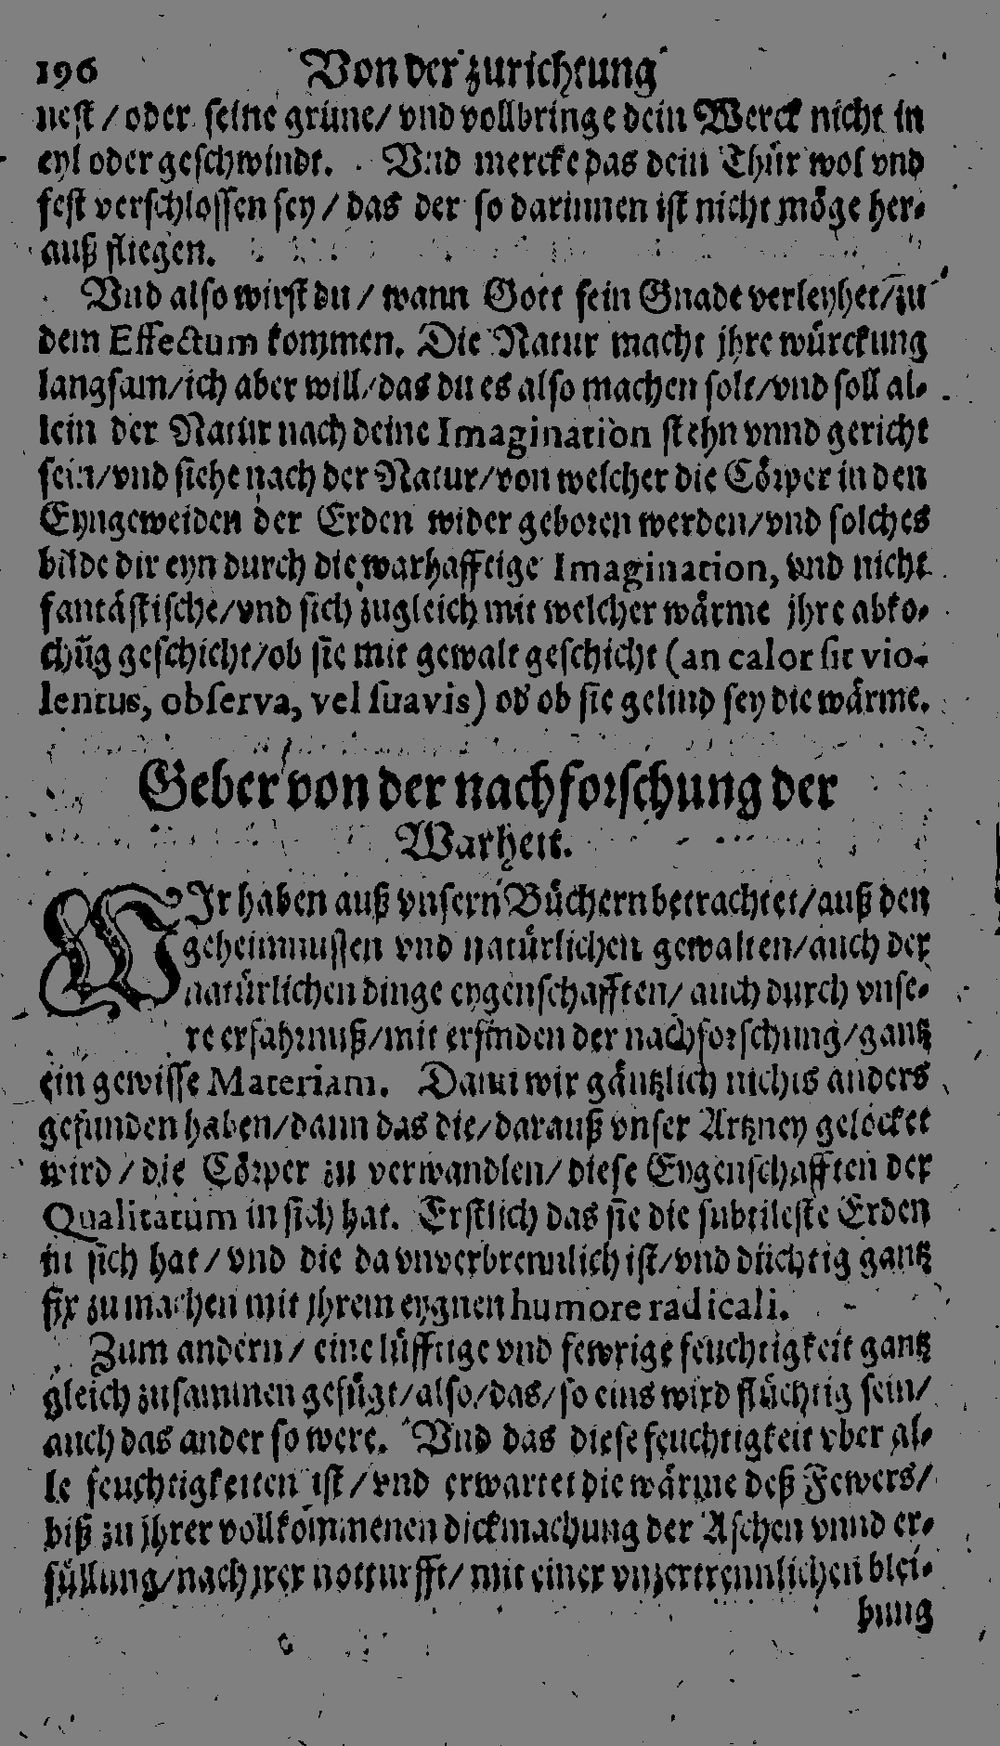 196 Von der zurichtung
nest / oder seine grüne / vnd vollbringe dein Werck nicht in
eyl oder geschwindt. Vnd mercke das dein Thür wol vnd
fest verschlossen sey / das der so darinnen ist nicht möge her-
auß fliegen.
Vnd also wirst du / wann Gott sein Gnade verleyhet / zu
dem Effectum kommen. Die Natur macht jhre würckung
langsam / ich aber will / das du es also machen solt / vnd soll al-
lein der Natur nach deine Imagination stehn vnnd gericht
sein / vnd siehe nach der Natur / von welcher die Cörper in den
Eyngeweiden der Erden wider geboren werden / vnd solches
bilde dir eyn durch die warhafftige Imagination, vnd nicht
fantästische / vnd sich zugleich mit welcher wärme jhre abko-
chūg geschicht / ob sie mit gewalt geschicht (an calor sit vio-
lentus, observa, vel suavis) od ob sie gelind sey die wärme.
Geber von der nachforschung der
Warheit.
WIr haben auß vnsern Büchern betrachtet / auß den
geheimnussen vnd natürlichen gewalten / auch der
natürlichen dinge eygenschafften / auch durch vnse-
re erfahrnuß / mit erfinden der nachforschung / gantz
ein gewisse Materiam. Dann wir gäntzlich nichts anders
gefunden haben / dann das die / darauß vnser Artzney gelocket
wird / die Cörper zu verwandlen / diese Eygenschafften der
Qualitatum in sich hat. Erstlich das sie die subtileste Erden
in sich hat / vnd die da vnverbrennlich ist / vnd düchtig gantz
fix zu machen mit jhrem eygnen humore radicali.
Zum andern / eine lüfftige vnd fewrige feuchtigkeit gantz
gleich zusammen gefügt / also / das / so eins wird flüchtig sein /
auch das ander so were. Vnd das diese feuchtigkeit vber al-
le feuchtigkeiten ist / vnd erwartet die wärme deß Fewers /
biß zu jhrer vollkommenen dickmachung der Aschen vnnd er-
füllung / nach jrer notturfft / mit einer vnzertrennlichen blei-
bung